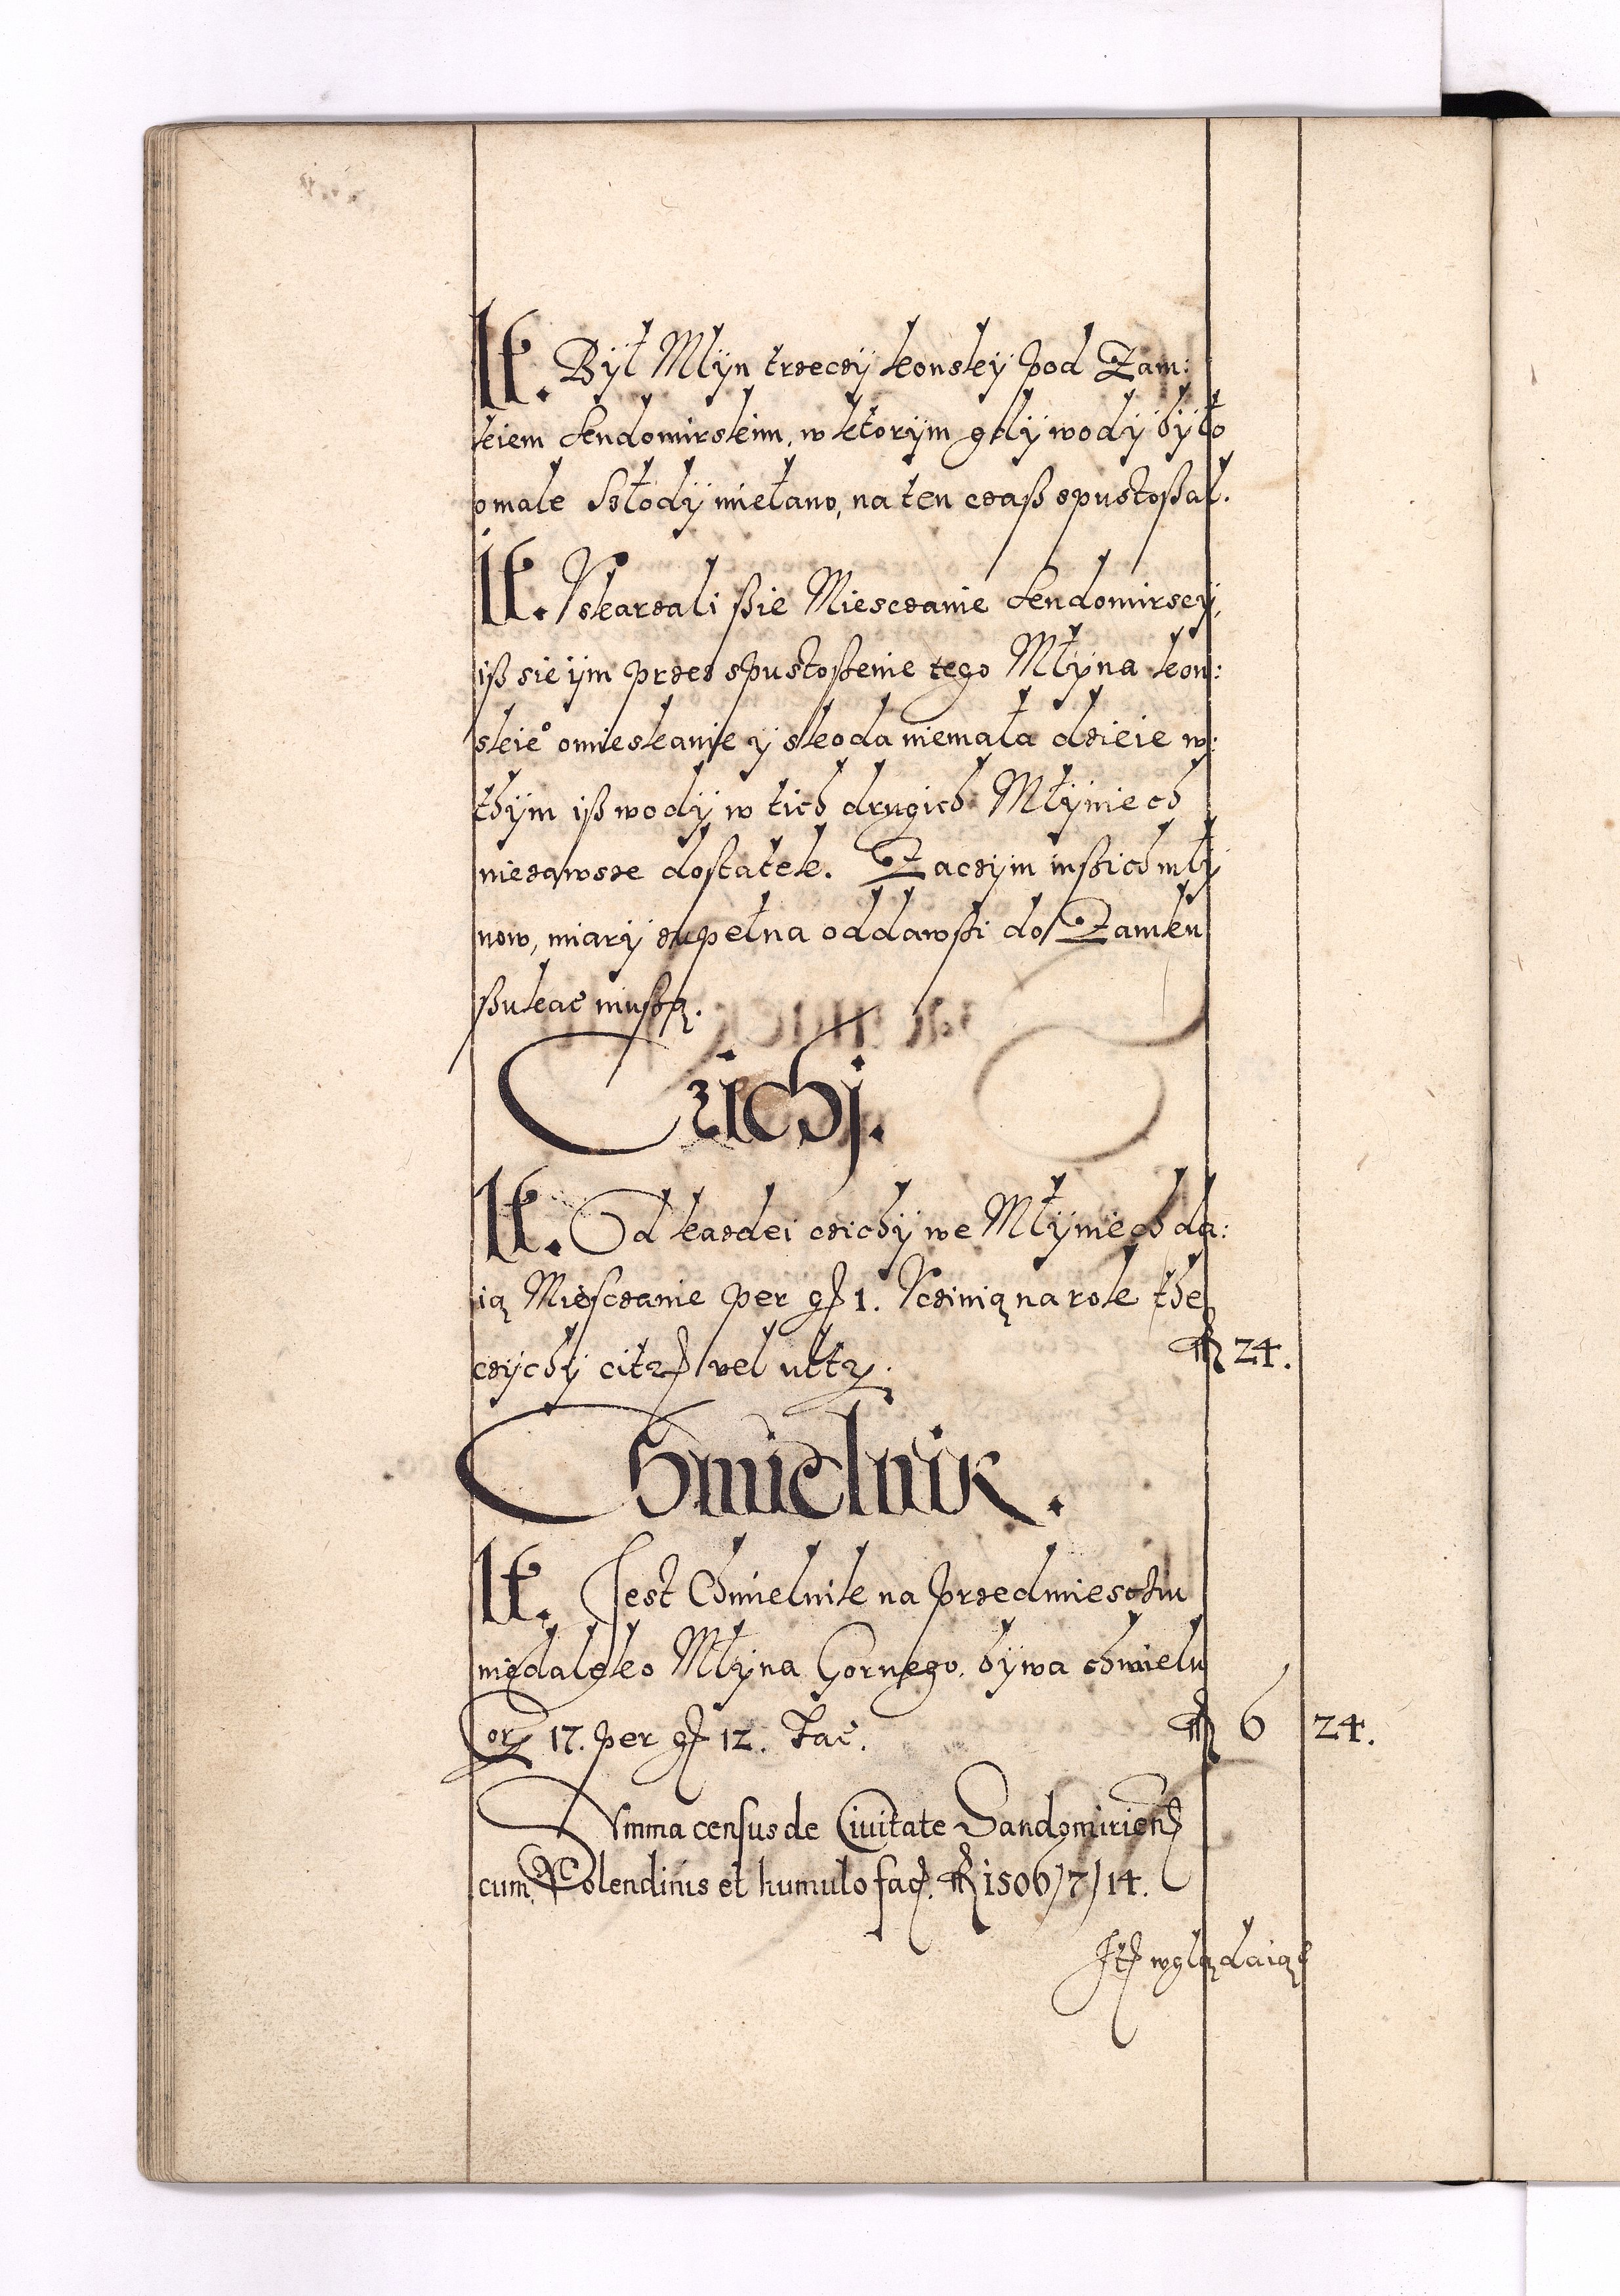 It. Był Młÿn trzeczÿ konskÿ pod Zam:
kiem Sendomirskim, w ktorÿm gdÿ wodÿ bÿło
omale Słodÿ mełano, na ten czaß spustoßał.
It. Vskarzali ßie Miesczanie Sendomirscÿ,
iß sie ÿm przes spustoßenie tego Młÿna kon:
skie° omieskanie ÿ skoda niemała dzieie w:
thÿm iß wodÿ w tich drugich Młÿniech
niezawsze dostatek. Zaczÿm inßich mlÿ
now, miarÿ zupełna oddawßi do Zamku
ßukac mußą.
Czichj.
It. Od kazdei czichÿ we Młÿniech da:
ią Miesczanie per gß 1. Vczinią na rok the
czÿchÿ citr vel ultr. ff 24.
Chmielnik.
It. Jest Chmielnik na przedmiesczu
niedaleko Młÿna Gornego, bÿwa chmielu
Cor 17. per gß 12. Fac. ff 6 | 24.
Summa census de Ciuitate Sandomirien
cum Molendinis et humulo fac. ff 1506/7/14.
It wglądaiąc